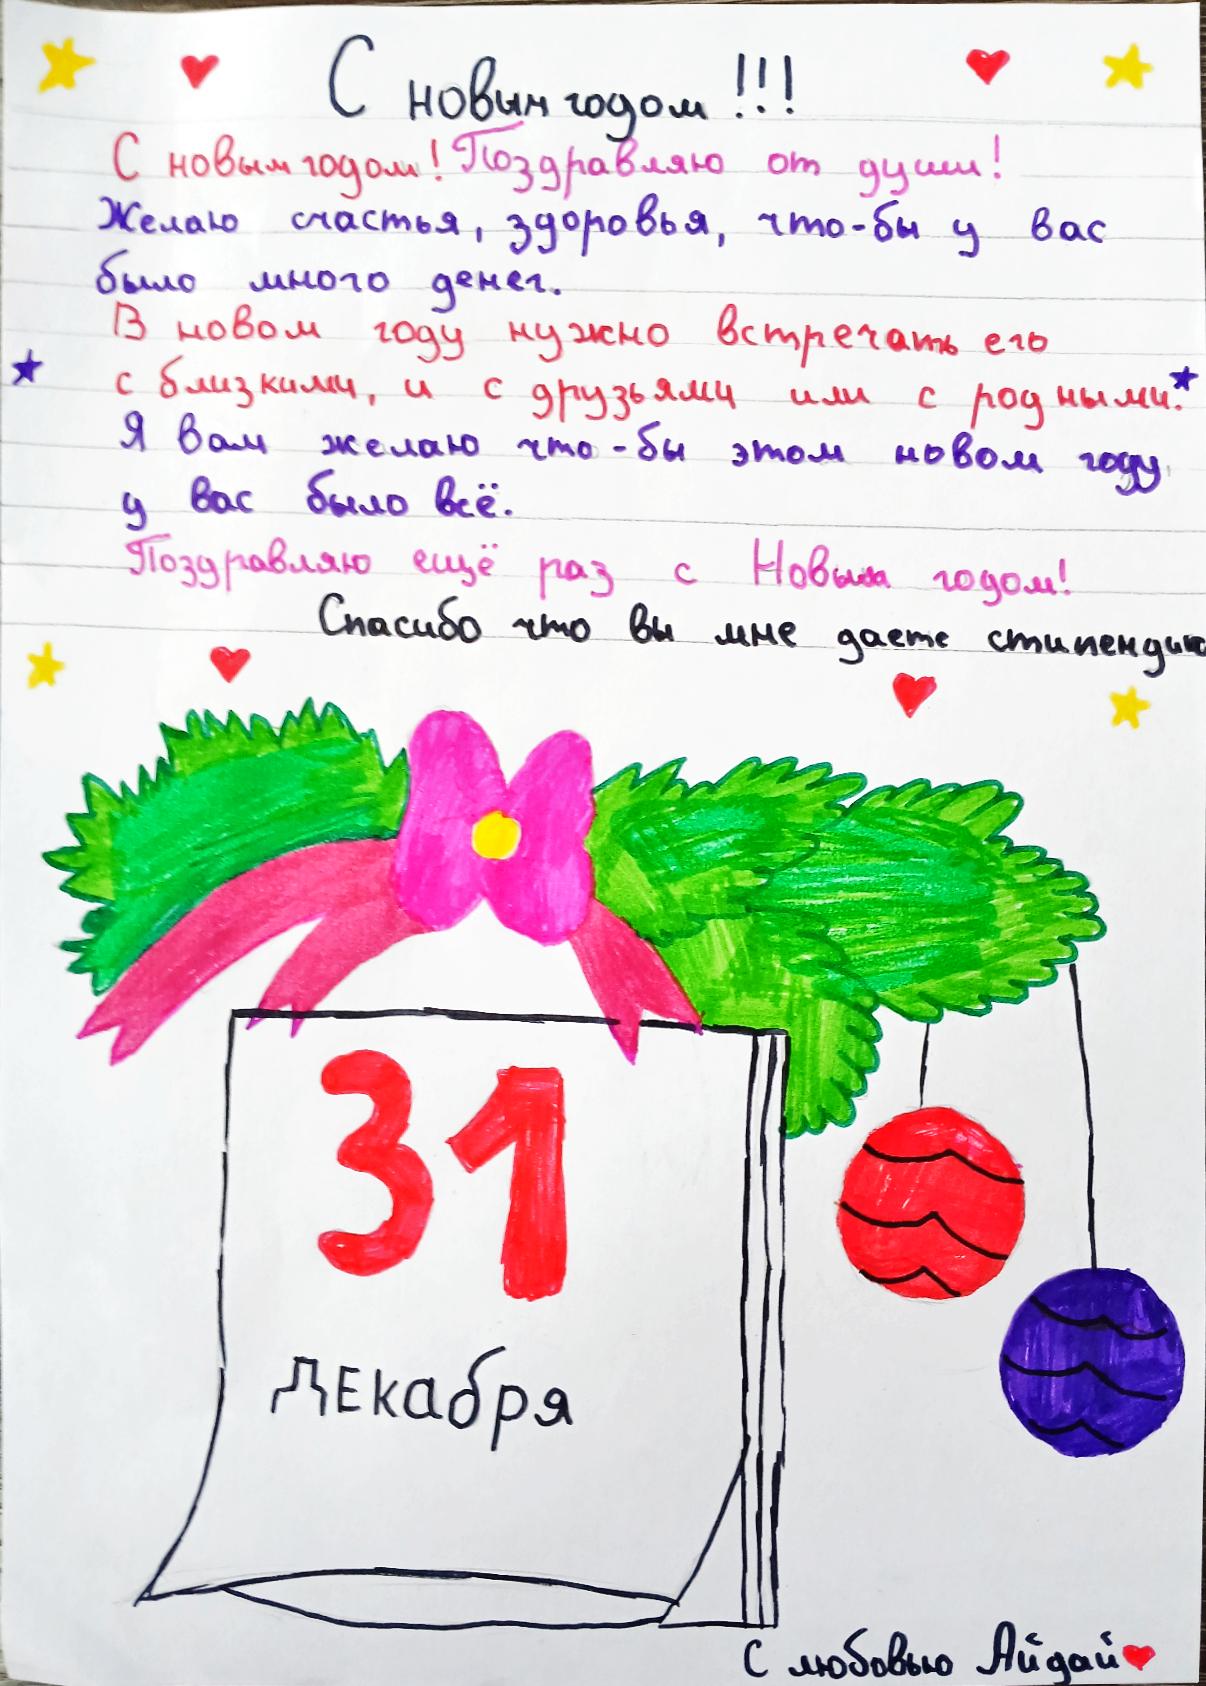 С новым годом!!!
С новым годом! Поздравляю от души!
Желаю счастья, здоровья, что-бы у вас
было много денег.
В новом году нужно встречать его
с близкими, и с друзьями или с родными.
Я вам желаю что-бы этом новом году
у вас было всё.
Поздравляю ещё раз с Новым годом!
Спасибо что вы мне даете стипендию
31
Декабря
С любовью Айдай